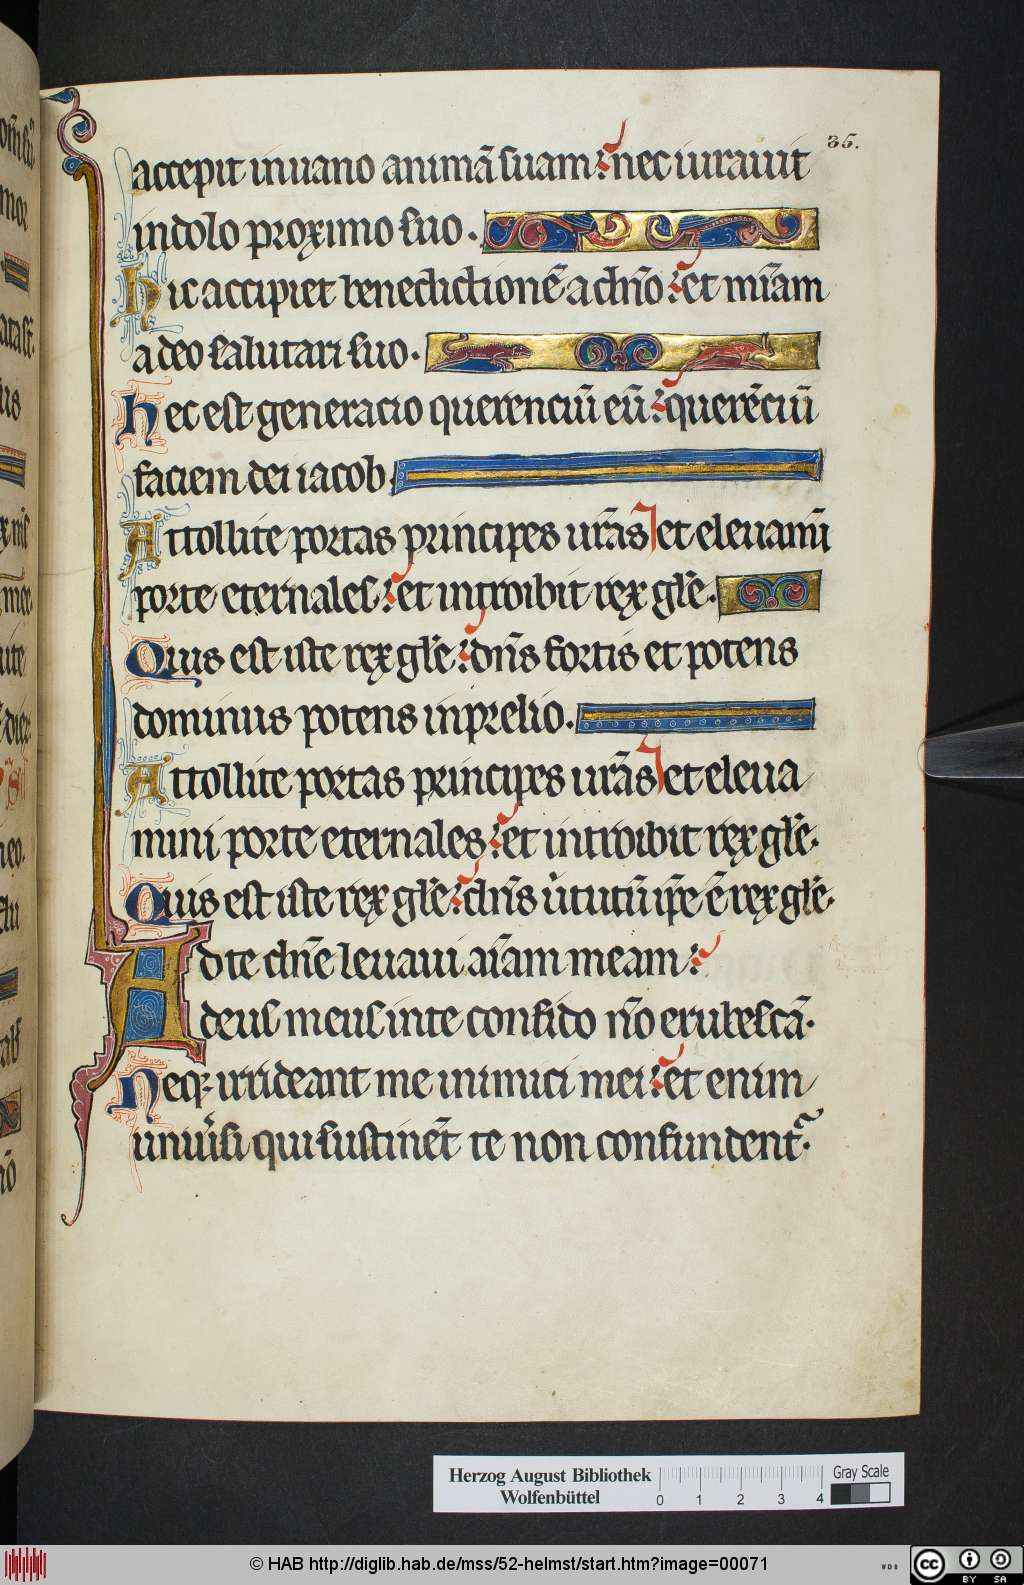 35.
accepit in uano animā suam: nec iurauit
in dolo proximo suo.
Hic accipiet benedictionē a dn̄o: et mīam
a deo salutari suo.
Hec est generacio querenciū eū: querēciū
faciem dei iacob.
Attollite portas principes ur̄as et eleuamī
porte eternales: et introibit rex gl̄e.
Quis est iste rex gl̄e: dn̄s fortis et potens
dominus potens in prelio.
Attollite portas principes ur̄as et eleua
mini porte eternales: et introibit rex gl̄e.
Quis est iste rex gl̄e: dn̄s u̾tutū ip̄e ē rex gl̄e.
Ad te dn̄e leuaui aīam meam:
deus meus in te confido nō erubescā.
Neq; irrideant me inimici mei: et enim
uniu̾si qui sustinēt te non confundent᷑.
Herzog August Bibliothek
Wolfenbüttel
0 1 2 3 4
Gray Scale
© HAB http://diglib.hab.de/mss/52-helmst/start.htm?image=00071
WDB
cc BY SA